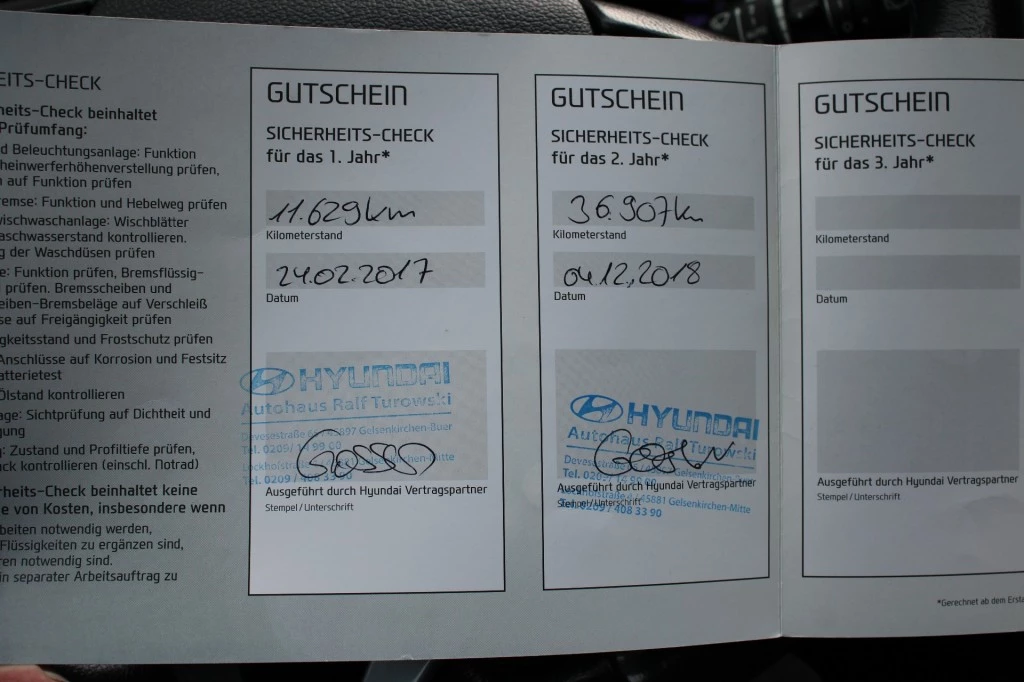 EITS-CHECK
heits-Check beinhaltet
Prüfumfang:
d Beleuchtungsanlage: Funktion
heinwerferhöhenverstellung prüfen,
n auf Funktion prüfen
remse: Funktion und Hebelweg prüfen
vischwaschanlage: Wischblätter
aschwasserstand kontrollieren.
g der Waschdüsen prüfen
e: Funktion prüfen, Bremsflüssig-
prüfen. Bremsscheiben und
eiben-Bremsbeläge auf Verschleiß
se auf Freigängigkeit prüfen
gkeitsstand und Frostschutz prüfen
Anschlüsse auf Korrosion und Festsitz
atterietest
Ölstand kontrollieren
age: Sichtprüfung auf Dichtheit und
gung
g: Zustand und Profiltiefe prüfen,
ck kontrollieren (einschl. Notrad)
rheits-Check beinhaltet keine
e von Kosten, insbesondere wenn
beiten notwendig werden,
Flüssigkeiten zu ergänzen sind,
ren notwendig sind.
in separater Arbeitsauftrag zu
GUTSCHEIN
SICHERHEITS-CHECK
für das 1. Jahr*
11.629km
Kilometerstand
24.02.2017
Datum
HYUNDAI
Autohaus Ralf Turowski
Devesestraße 45897 Gelsenkirchen-Buer
Tel. 0209/ 14 99 00
Gelsenkirchen-Mitte
Tel. 0209 / 408 33 90
Ausgeführt durch Hyundai Vertragspartner
Stempel / Unterschrift
GUTSCHEIN
SICHERHEITS-CHECK
für das 2. Jahr*
36.907km
Kilometerstand
04.12.2018
Datum
HYUNDAI
Autohaus Ralf Turowski
Gelsenkirchen
Tel. 0209
Ausgeführt durch Hyundai Vertragspartner
45881 Gelsenkirchen-Mitte
Stempel / Unterschrift
Tel. 0209 / 408 33 90
GUTSCHEIN
SICHERHEITS-CHECK
für das 3. Jahr*
Kilometerstand
Datum
Ausgeführt durch Hyundai Vertragspartner
Stempel / Unterschrift
*Gerechnet ab dem Ersta